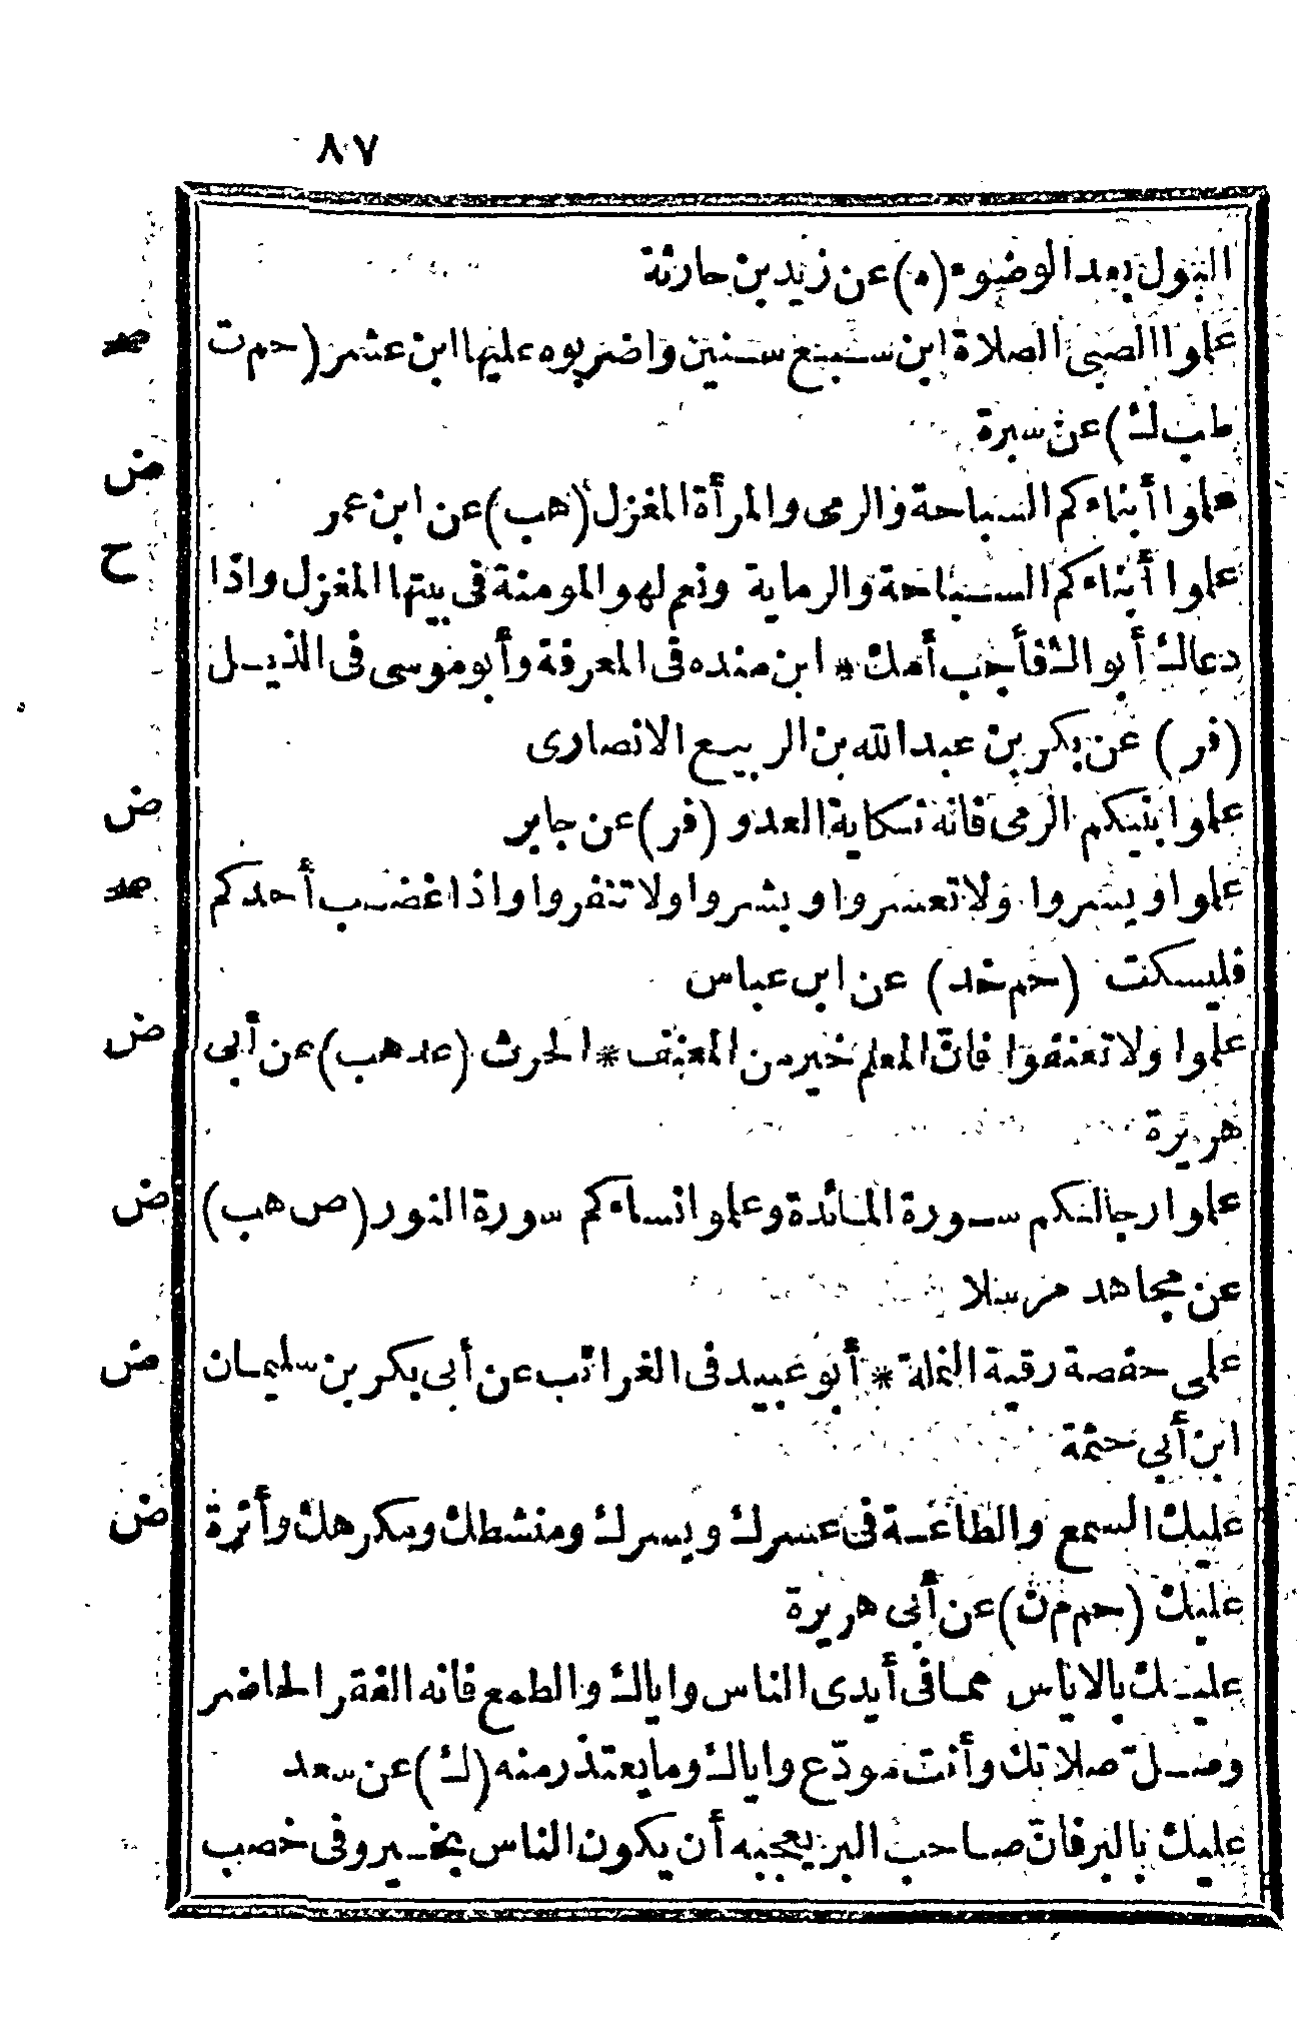 ٨٧
البول بعد الوضوء (ه) عن زيد بن حارثة
علموا الصبي الصلاة ابن سبع سنين واضربوه عليها ابن عشر (حم ت
صح
طب ك) عن سبرة
ض
علموا أبناءكم السباحة والرمى والمرأة المغزل (هب) عن ابن عمر
ح
علموا أبناءكم السباحة والرماية ونعم لهو المومنة في بيتها المغزل واذا
دعاك أبواك فأجب أمك * ابن منده فى المعرفة وأبو موسى فى الذيل
(فر) عن بكر بن عبد الله بن الربيع الانصارى
ض
علموا بنيكم الرمى فانه نكاية العدو (فر) عن جابر
صح
علموا ويسروا ولا تعسروا وبشروا ولا تنفروا واذا غضب أحدكم
فليسكت (حم خد) عن ابن عباس
ض
علموا ولا تعنفوا فانّ المعلم خير من المعنف * الحرث (عد هب) عن أبى
هريرة
ض
علموا رجالكم سورة المائدة وعلموا نساءكم سورة النور (ص هب)
عن مجاهد مرسلا
ض
على حفصة رقية النملة * أبو عبيد فى الغرائب عن أبى بكر بن سليمان
ابن أبى حثمة
ض
عليك السمع والطاعة فى عسرك ويسرك ومنشطك ومكرهك وأثرة
عليك (حم م ن) عن أبى هريرة
عليك بالاياس مما فى أيدى الناس واياك والطمع فانه الفقر الحاضر
وصل صلاتك وأنت مودّع واياك وما يعتذر منه (ك) عن سعد
عليك بالبر فانّ صاحب البز يعجبه أن يكون الناس بخير وفى خصب